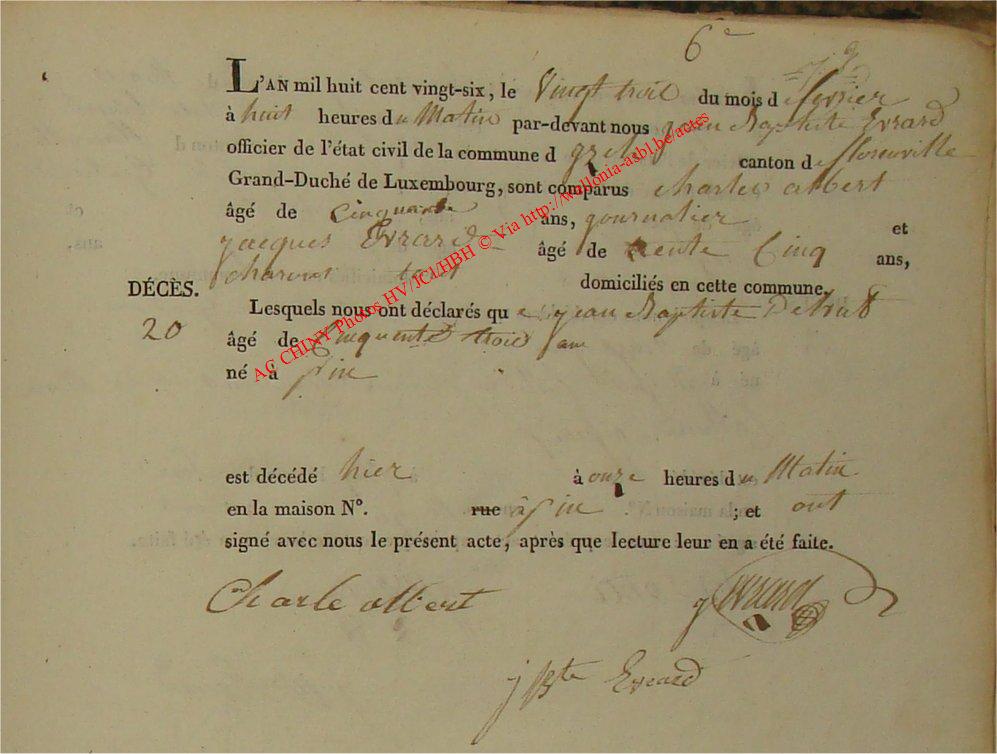 6e
L'AN mil huit cent vingt-six, le Vingt trois du mois d fevrier
à huit heures du Matin par-devant nous jean Baptiste Evrard
officier de l'état civil de la commune d canton d florenville
Grand-Duché de Luxembourg, sont comparus charles albert
âgé de Cinquante ans, journalier et
jacques Evrard âgé de trente Cinq ans,
domiciliés en cette commune.
DÉCÈS. Lesquels nous ont déclarés que jean Baptiste
20 âgé de Cinquente trois ans
né à pin
est décédé hier à onze heures du Matin
en la maison N°. rue à pin ; et ont
signé avec nous le présent acte, après que lecture leur en a été faite.
Charle albert j Evrard
j Bte Evrard
AC CHINY Photos HV/JCl/HBH © Via http://wallonia-asbl.be/actes